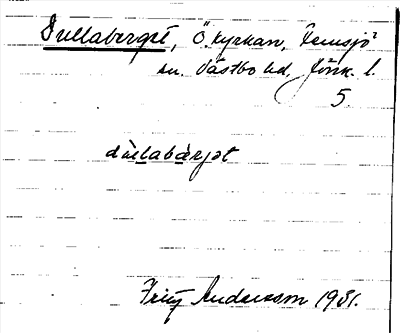 Dullaberget, Ö. kyrkan, Femsjö
sn. Västbo hd, Jönk. l.
5
dùllabærjət
Fritz Andersson 1931.